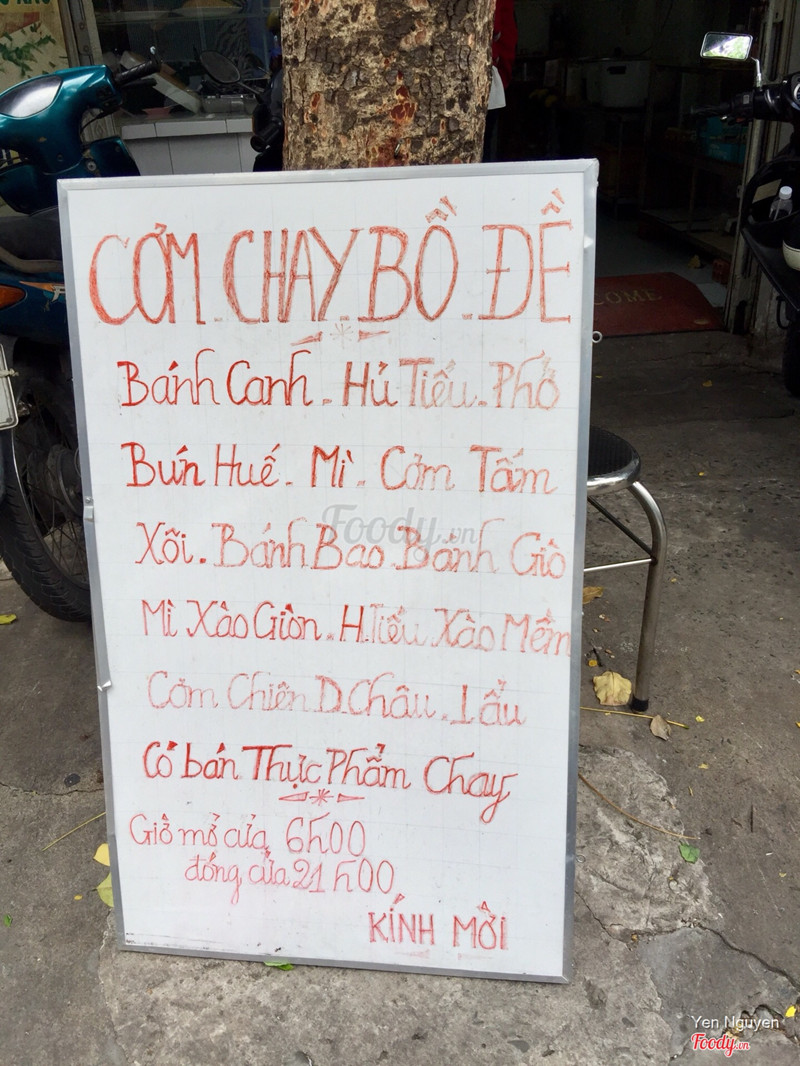 CƠM CHAY BỒ ĐỀ
Bánh Canh. Hủ Tiếu. Phở
Bún Huế. Mì. Cơm Tấm
Xôi. Bánh Bao Bánh Giò
Mì Xào Giòn. H.Tiếu Xào Mềm
Cơm Chiên D.Châu. Lẩu
Có bán Thực Phẩm Chay
Giờ mở cửa 6h00
đóng cửa 21h00
KÍNH MỜI
Foody.vn
COME
Yen Nguyen
Foody.vn